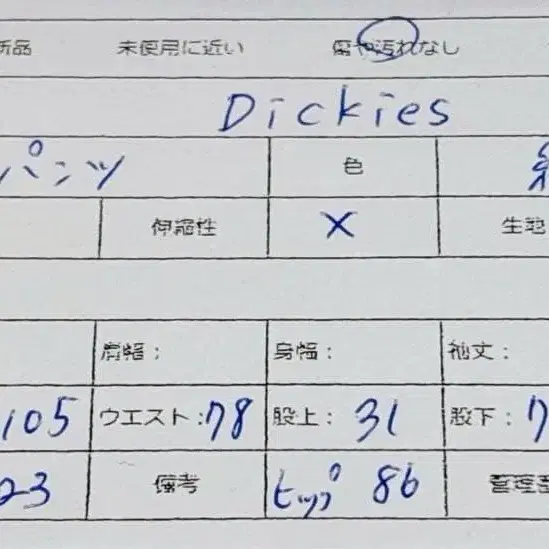 新品 未使用に近い 傷や汚れなし
Dickies
パンツ 色
伸縮性 × 生地
肩幅： 身幅： 袖丈：
105 ウエスト：78 股上：31 股下：7
23 備考 ヒップ 86 管理